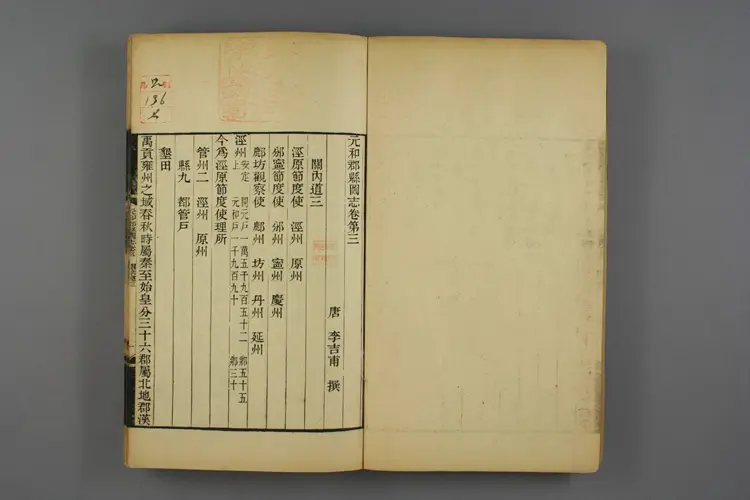 元和郡縣圖志卷第三
唐 李吉甫 撰
關內道三
涇原節度使 涇州 原州
邠寧節度使 邠州 寧州 慶州
鄜坊觀察使 鄜州 坊州 丹州 延州
涇州 安定 上 開元戶一萬五千九百五十二 鄉五十五 元和戶一千九百九十 鄉三十
今爲涇原節度使理所
管州二 涇州 原州
縣九 都管戶
墾田
禹貢雍州之域春秋時屬秦至始皇分三十六郡屬北地郡漢
136